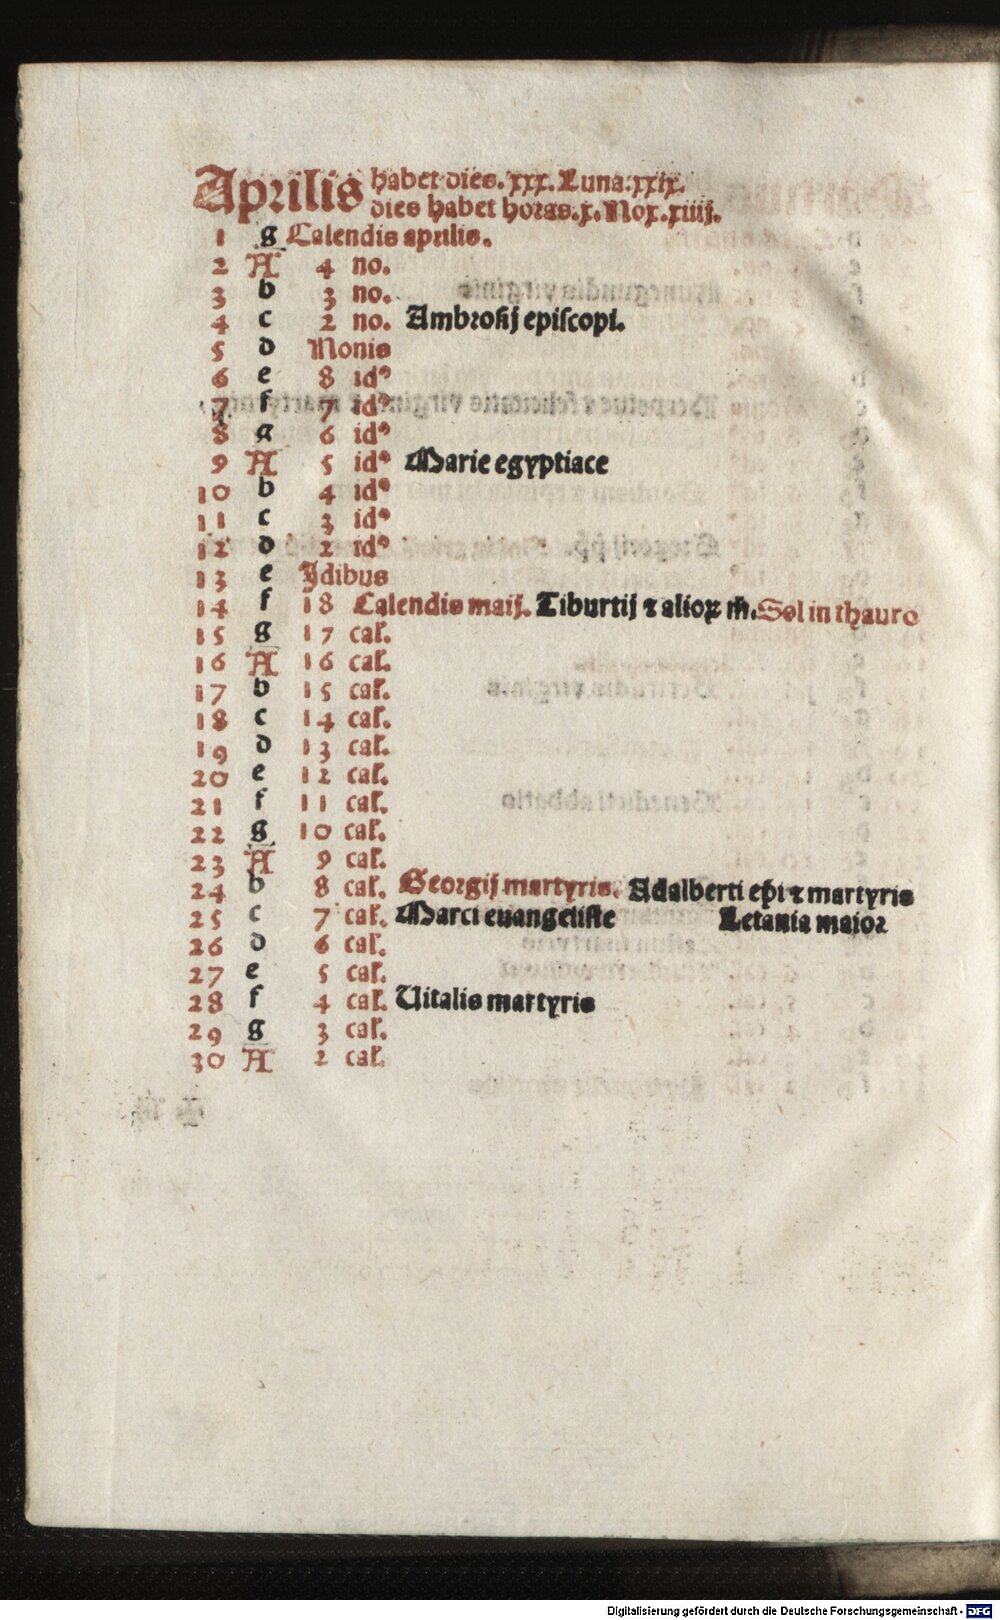 Aprilis habet dies. xxx. Luna. xxix.
dies habet horas. x. Nox. xiiij.
1 g Calendis aprilis.
2 A 4 no.
3 b 3 no.
4 c 2 no. Ambrosij episcopi.
5 d Nonis
6 e 8 idꝰ
7 f 7 idꝰ
8 g 6 idꝰ
9 A 5 idꝰ Marie egyptiace
10 b 4 idꝰ
11 c 3 idꝰ
12 d 2 idꝰ
13 e Idibus
14 f 18 Calendis maij. Tiburtij ⁊ alioꝝ m̄. Sol in thauro
15 g 17 cal̄.
16 A 16 cal̄.
17 b 15 cal̄.
18 c 14 cal̄.
19 d 13 cal̄.
20 e 12 cal̄.
21 f 11 cal̄.
22 g 10 cal̄.
23 A 9 cal̄.
24 b 8 cal̄. Georgij martyris. Adalberti ep̄i ⁊ martyris
25 c 7 cal̄. Marci euangeliste Letania maior
26 d 6 cal̄.
27 e 5 cal̄.
28 f 4 cal̄. Uitalis martyris
29 g 3 cal̄.
30 A 2 cal̄.
Digitalisierung gefördert durch die Deutsche Forschungsgemeinschaft - DFG